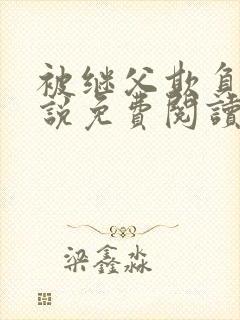 被继父欺负
說免費閱讀
梁鑫淼